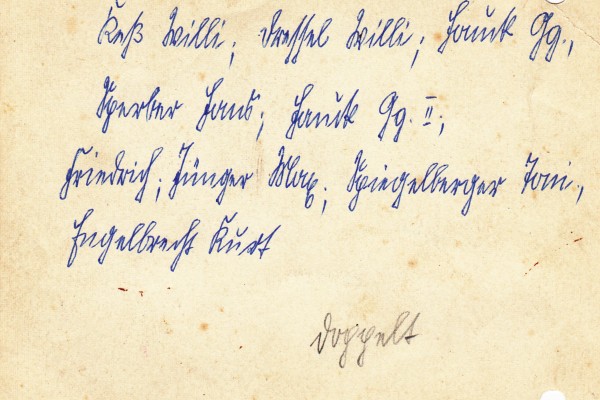 Keß Willi; Dressel Willi; Hauck Gg.,
Sperber Hans; Hauck Gg. II.;
Friedrich; Jünger Max; Spiegelberger Toni.,
Engelbrecht Kurt
doppelt